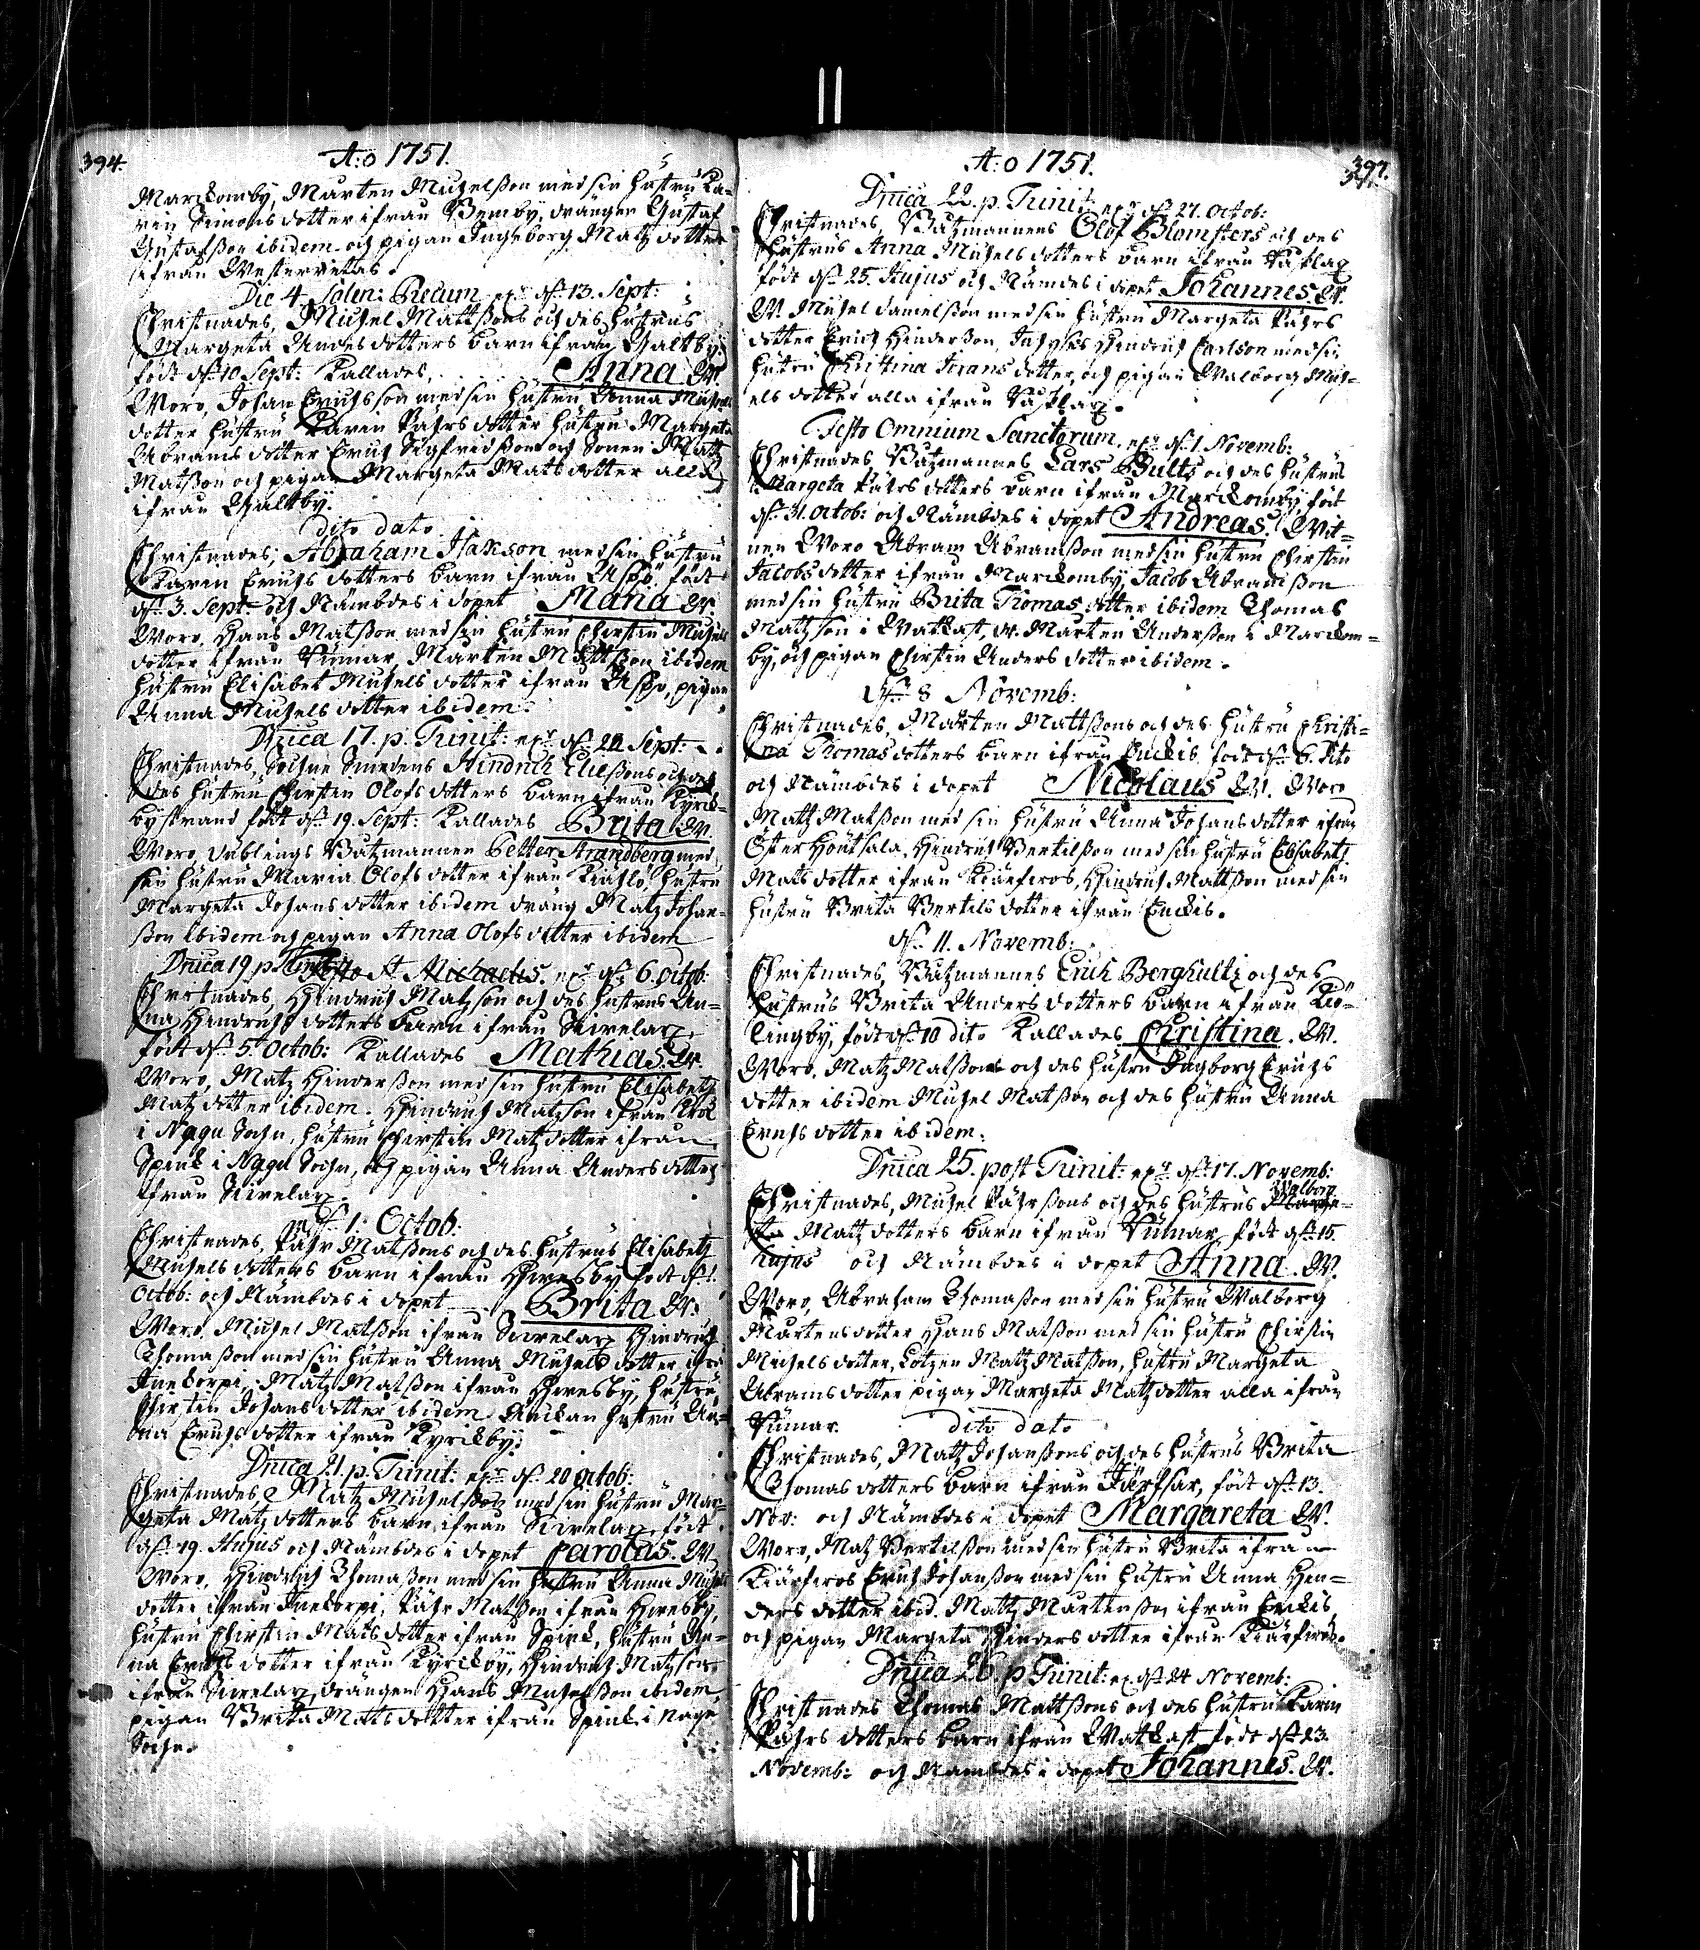 394.
A:o 1751.
Marckomby, Marten Michelsson med sin hustru Ka-
rin Simons dotter ifrån Bemby, drängen Gustaf
Gustafsson ibidem. och pigan Ingeborg Matz dotter
ifrån Westervettas.
Die 4. Solen: Precum. qvi est d. 13. Sept:
Christnades, Michel Mattssons och des hustrus
Margeta Anders dotters barn ifrån Galtby.
född d. 10 Sept: Kallades, Anna. W.
Woro, Johan Erichsson med sin hustru Anna Michels
dotter hustru Karin Pährs dotter hustru Margeta
Abrams dotter Erich Sigfredsson och Sonen Matz
Matsson och pigan Margeta Mats dotter alla
ifrån Galtby.
dito dato
Christnades, Abraham Isaksson med sin hustru
Karin Erichs dotters barn ifrån Aspö. född
d. 3. Sept: och Nämbdes i dopet Maria W.
Woro, Hans Matsson med sin hustru Chirstin Michels
dotter ifrån Wümar, Marten Mattsson ibidem
hustru Elisabet Michels dotter ifrån Aspö, pigan
Anna Michels dotter ibidem.
Dnica 17. p. Trinit: d. 22 Sept:
Christnades, Sochne Smedens Hindrich Eliessons och des
hustru Chirstin Olofs dotters barn ifrån Kyrck-
bystrand född d. 19. Sept: Kallades Brita W.
Woro, Dublings Båtzmannen Petter Strandberg med
sin hustru Maria Olofs dotter ifrån hustru
Margeta Johans dotter ibidem dräng Matz Johan-
sson ibidem och pigan Anna Olofs dotter ibidem
Dnica 19 p. Trinit: Festo St Michaelis. d. 6. Octob:
Christnades, Hindrich Matzson och des hustrus An-
na Hindrichs dotters barn ifrån Kirvelax
född d. 5. Octob: Kallades Mathias. W.
Woro, Matz Hindersson med sin hustru Elisabeth
Matz dotter ibidem. Hindrich Matzson ifrån
i Nagu Sochn, hustru Chirstin Matz dotter ifrån
Spink i Nagu Sochn, och pigan Anna Anders dotter
ifrån Kirvelax.
d. 1. Octob:
Christnades, Pähr Matssons och des hustrus Elisabeth
Michels dotters barn ifrån Hvesby född d. 1.
Octob: och Nämbdes i dopet Brita W.
Woro, Michel Matsson ifrån Kirvelax Hindrich
Thomasson med sin hustru Anna Michels dotter ifrån
Matz Matsson ifrån Hvesby, hustru
Chirstin Johans dotter ibidem Änckan hustru An-
na Erichs dotter ifrån Kyrckby.
Dnica 21. p. Trinit: d. 20 Octob:
Christnades Matz Michelsson med sin hustru Mar-
geta Matz dotters barn ifrån Kirvelax född
d. 19. Hujus och Nämbdes i dopet Carolus. W.
Woro, Hindrich Thomasson med sin hustru Anna Michels
dotter ifrån Pähr Matsson ifrån Hvesby,
hustru Chirstin Mats dotter ifrån Spink, hustru An-
na Erichs dotter ifrån Kyrckby, Hindrich Matzson
ifrån Kirvelax, drängen Hans Michelsson ibidem
pigan Brita Mats dotter ifrån Spink i Nagu
Sochn.
397.
A:o 1751.
Dnica 22. p. Trinit: d. 27. Octob:
Christnades, Båtzmannens Olof Blomsters och des
hustrus Anna Michels dotters barn ifrån
född d. 25. Hujus och Nämdes i dopet Johannes. W.
W. Michel Danielsson med sin hustru Margeta Pährs
dotter Erich Hindersson, Hindrich Carlson med sin
hustru Christina Frans dotter, och pigan Walborg Mich-
els dotter alla ifrån
Festo Omnium Sanctorum. d. 1 Novemb:
Christnades Båtzmannes Lars Bults och des hustrus
Margeta Pährs dotters barn ifrån Marckomby, född
d. 31. Octob: och Nämbdes i dopet Andreas. Wit-
nen Woro Abram Abramsson med sin hustru Chirstin
Jacobs dotter ifrån Marckomby, Jacob Abramsson
med sin hustru Brita Thomas dotter ibidem Thomas
Matzson i Watkast, W. Marten Andersson i Marckom-
by, och pigan Chirstin Anders dotter ibidem.
d. 8 Novemb:
Christnades, Marten Mattssons och des hustru Christi-
na Thomas dotters barn ifrån Enckis född d. 6. dito
och Nämbdes i dopet Nicolaus W. Woro
Matz Matsson med sin hustru Anna Johans dotter ifrån
Öster Hontsala, Hindrich Bertilsson med sin hustru Elisabeth
Mats dotter ifrån Kiärferos, Hindrich Mattsson med sin
hustru Brita Bertils dotter ifrån Enckis.
d. 11. Novemb:
Christnades, Båtzmannes Erich Berghultz och des
hustrus Brita Anders dotters barn ifrån Ku-
lingby, född d. 10 dito Kallades Christina. W.
Woro. Matz Matssons och des hustru Ingborg Erichs
dotter ibidem Michel Matsson och des hustru Anna
Erichs dotter ibidem.
Dnica 25. post Trinit: d. 17. Novemb:
Christnades, Michel Pährssons och des hustrus Marge-
Walborg
ta Matz dotters barn ifrån Wümar, född d. 15.
hujus och Nämbdes i dopet Anna. W.
Woro, Abraham Thomasson med sin hustru Walborg
Martens dotter Hans Matsson med sin hustru Chirstin
Michels dotter, Lotzen Matz Matsson, hustru Margeta
Abrams dotter pigan Margeta Matz dotter alla ifrån
Wümar. dito dato
Christnades, Matz Johanssons och des hustrus Brita
Thomas dotters barn ifrån född d. 13.
Nov: och Nämbdes i dopet Margareta W.
Woro, Matz Bertilsson med sin hustru Brita ifrån
Kiärferos Erich Johansson med sin hustru Anna Hin-
ders dotter ibid. Mattz Martensson ifrån Enckis
och pigan Margeta Hinders dotter ifrån Kiärferos.
Dnica 26. p. Trinit: d. 24 Novemb:
Christnades Thomas Mattssons och des hustru Karin
Pährs dotters barn ifrån Watkast född d. 23.
Novemb: och Nämbdes i dopet Johannes. W.